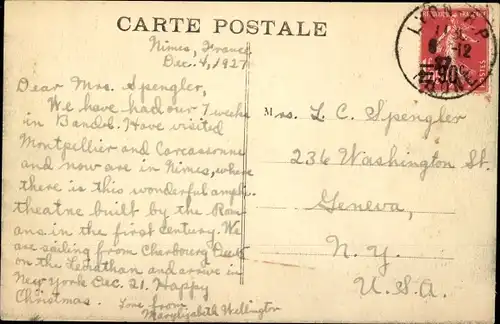 CARTE POSTALE
Nimes, France
Dec. 4, 1927
Dear Mrs. Spengler,
We have had our 7 weeks
in Bandol. Have visited
Montpellier and Carcassonne
and now are in Nimes, where
there is this wonderful amph-
theatre built by the Rom-
ans in the first century. We
are sailing from Cherbourg Dec. 15
on the Leviathan and arrive in
New York Dec. 21. Happy
Christmas. Love from
Marylizabeth Wellington
M
Mrs. L. C. Spengler
236 Washington St.
Geneva,
N. Y.
U. S. A.
LYON R.P.
6 -12
27
=90
RHONE